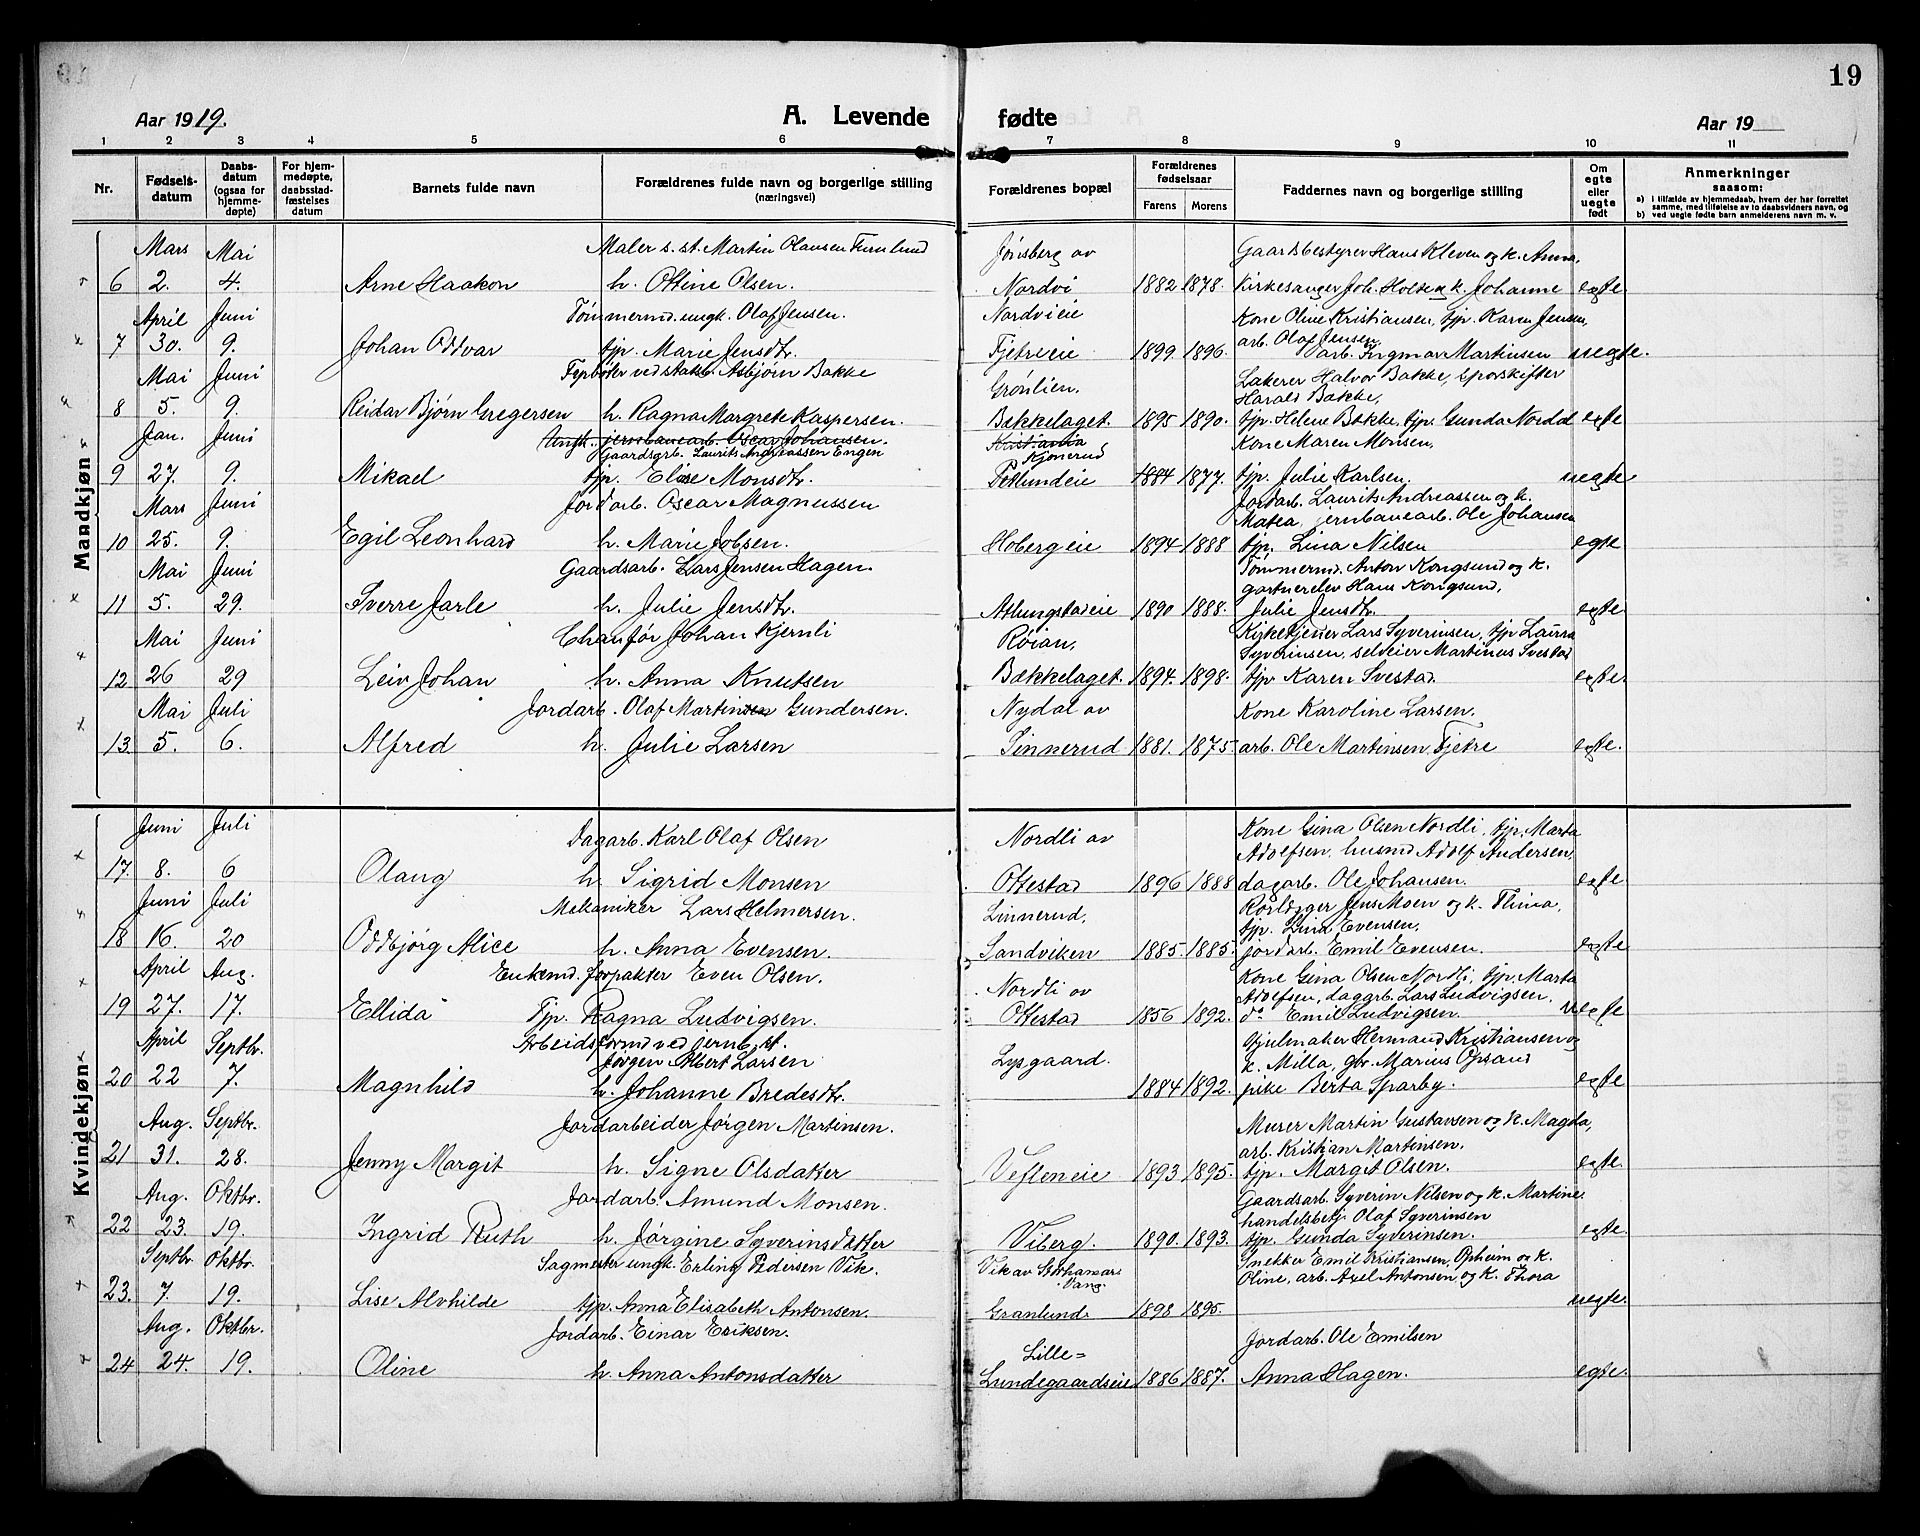 19
Aar 1919.
A. Levende fødte
Aar 19
1 2 3 4 5 6 7 8 9 10 11
Nr.
Fødsels-datum
Daabs-datum (ogsaa for hjemme-døpte)
For hjem-medøpte, daabsstad-fæstelses datum
Barnets fulde navn
Forældrenes fulde navn og borgerlige stilling (næringsvei)
Forældrenes bopæl
Forældrenes fødselsaar
Farens Morens
Faddernes navn og borgerlige stilling
Om egte eller uegte født
Anmerkninger saasom:
a) I tilfælde av hjemmedaab, hvem der har forrettet samme, med tilføielse av to daabsvidners navn, og
b) ved uegte fødte barn anmelderens navn m. v.
Mandkjøn
Mars Mai Maler s. st. Martin Olausen Furulund Jønsberg av Gaardsbestyrer Hans Kleven og k. Anna,
6 2. 4. Arne Haakon h. Ottine Olsen. Nordvi 1882 1878. Kirkesanger Joh. Holte og k. Johanne egte
April Juni Tømmermd. ungk. Olaf Jensen. Nordvieie Kone Oline Kristiansen, tjp. Karen Jensen,
arb. Olaf Jensen,
7 30. 9. Johan Oddvar tjp. Marie Jensdtr. Tjetreeie 1899. 1896. arb. Ingmar Martinsen uegte.
Mai Juni Asbjørn Bakke Grønlien. Lakerer Halvor Bakke, Sporskifter
Harald Bakke,
8 5. 9. Reidar Bjørn Gregersen h. Ragna Margrete Kaspersen. Bækkelaget. 1895 1890. tjp. Helene Bakke, tjp. Gunda Nordal egte
Jan. Juni Ungk. jernbanearb. Oscar Johansen. Kristiania Kone Maren Monsen,
Gaardsgb. Laurits Andreassen Engen Kjonerud
9 27. 9. Mikael tjp. Elise Monsdtr. Petlundeie 1884 1877. tjp. Julie Karlsen. uegte
Mars Juni Jordarb. Oscar Magnussen Jordarb. Laurits Andreassen og k.
Matea, jernbanearb. Ole Johansen
10 25. 9. Egil Leonhard h. Marie Jobsen. Hobergeie 1894 1888 tjp. Lina Nilsen egte
Mai Juni Gaardsarb. Lars Jensen Hagen. Tømmermd. Anton Kongsund og k.
gartnerelev Hans Kongsund,
11 5. 29. Sverre Jarle h. Julie Jensdtr. Atlungstadeie 1890 1888. Julie Jensdtr. egte
Mai Juni Chauffør Johan Kjernli Røian, Kirketjener Lars Syverinsen, tjp. Laura
Syverinsen, selveier Martinus Svestad
12 26 29 Leiv Johan h. Anna Knutsen Bækkelaget. 1894. 1898. tjp. Karen Svestad. egte.
Mai Juli Jordarb. Olaf Martinsen Gundersen. Nydal av Kone Karoline Larsen.
13. 5. 6. Alfred h. Julie Larsen Sinnerud 1881. 1875. arb. Ole Martinsen, Tjetre egte.
Kvindekjøn
Juni Juli Dagarb. Karl Olaf Olsen Nordli av Kone Gina Olsen Nordli, tjp. Marta
Adolfsen, husmd Adolf Andersen,
17. 8. 6 Olaug h. Sigrid Monsen Ottestad 1896 1888 dagarb. Ole Johansen. egte
Juni Juli Mekaniker Lars Helmersen. Linnerud, Rørlægger Jens Moen og k. Thina,
tjp. Lina Evensen,
18 16. 20 Oddbjørg Alice h. Anna Evensen. Sandviken 1885. 1885. jordarb. Emil Evensen. egte
April Aug. Enkemd. forpakter Even Olsen. Nordli av Kone Gina Olsen Nordli, tjp. Marta
Adolfsen, dagarb. Lars Ludvigsen,
19 27. 17. Ellida Tjp. Ragna Ludvigsen. Ottestad 1856 1892. do Emil Ludvigsen. uegte
April Septbr. Arbeidsformd ved jernb. st. Hjulmaker Hermand Kristiansen og
Jørgen Albert Larsen Lysgaard. k. Milla, gbr. Marius Opsand
20 22 7. Magnhild h. Johanne Bredesdtr. 1884 1892. pike Berta Sparby. egte
Aug. Septbr. Jordarbeider Jørgen Martinsen. Murer Martin Gustavsen og k. Magda,
arb. Kristian Martinsen.
21 31. 28. Jenny Margit h. Signe Olsdatter Vefleneie 1893 1895. tjp. Margit Olsen. egte.
Aug. Oktbr. Jordarb. Amund Monsen. Gaardsarb. Syverin Nilsen og k. Martine
handelsbetj. Olaf Syverinsen
22 23. 19. Ingrid Ruth h. Jørgine Syverinsdatter Viberg. 1890. 1893. tjp. Gunda Syverinsen. egte.
Septbr. Oktbr. Sagmester ungk. Erling Pedersen Vik. Vik av Storhamar Vang. Snekker Emil Kristiansen, Opheim og k.
Oline, arb. Axel Antonsen og k. Thora
23. 7. 19. Lise Alvhilde tjp. Anna Elisabeth Antonsen. Granlund 1898 1895. uegte.
Aug. Oktbr. Jordarb. Einar Eriksen. Lille= Jordarb. Ole Emilsen
24 24. 19. Oline h. Anna Antonsdatter Lundegaardseie 1886 1887. Anna Hagen. egte.